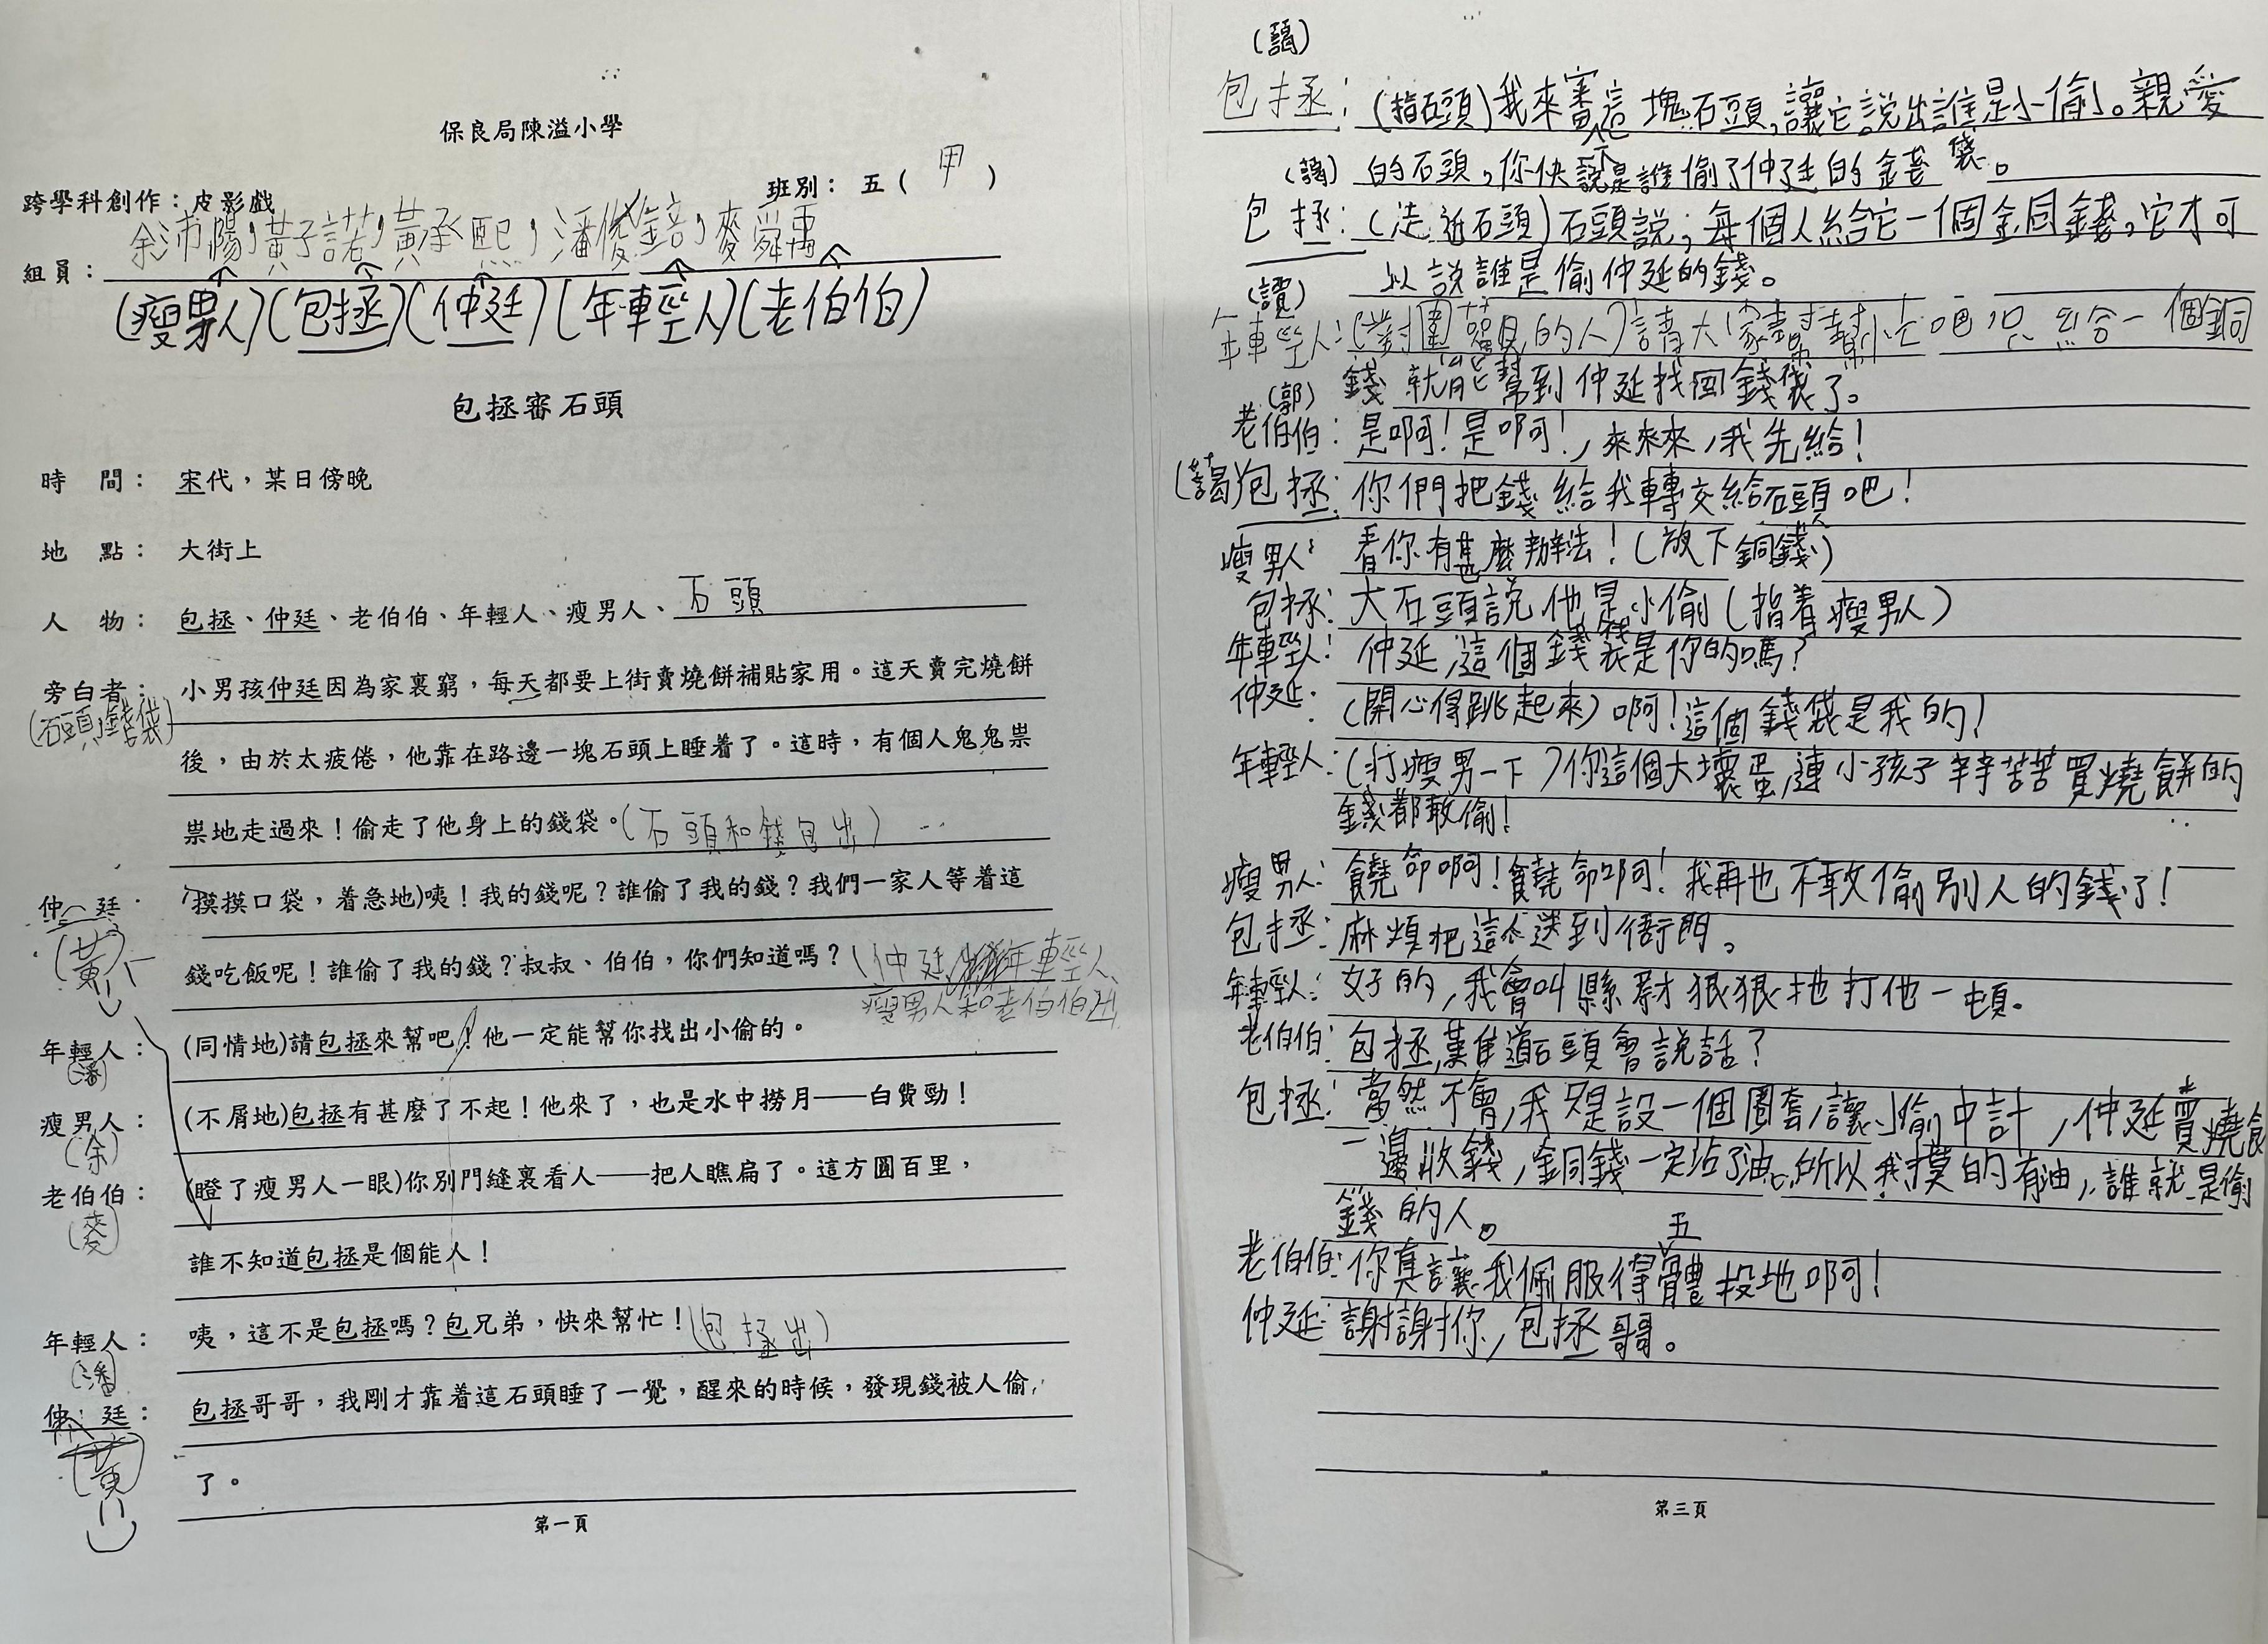 保良局陳溢小學
跨學科創作：皮影戲
班別： 五（ 甲 ）
組員： 余沛陽，黃子諾，黃承熙，潘俊錇，麥舜禹
(瘦男人)(包拯)(仲廷)(年輕人)(老伯伯)
包拯審石頭
時 間： 宋代，某日傍晚
地 點： 大街上
人 物： 包拯、仲廷、老伯伯、年輕人、瘦男人、石頭
旁白者： 小男孩仲廷因為家裏窮，每天都要上街賣燒餅補貼家用。這天賣完燒餅
(石頭，錢袋)
後，由於太疲倦，他靠在路邊一塊石頭上睡着了。這時，有個人鬼鬼祟
祟地走過來！偷走了他身上的錢袋。(石頭和錢包出)
仲 廷： (摸摸口袋，着急地)咦！我的錢呢？誰偷了我的錢？我們一家人等着這
(黃)
錢吃飯呢！誰偷了我的錢？叔叔、伯伯，你們知道嗎？(仲廷 年輕人、
瘦男人和老伯伯出
年輕人： (同情地)請包拯來幫吧！他一定能幫你找出小偷的。
(潘)
瘦男人： (不屑地)包拯有甚麼了不起！他來了，也是水中撈月——白費勁！
(余)
老伯伯： (瞪了瘦男人一眼)你別門縫裏看人——把人瞧扁了。這方圓百里，
(麥)
誰不知道包拯是個能人！
年輕人： 咦，這不是包拯嗎？包兄弟，快來幫忙！(包拯出)
(潘)
仲 廷： 包拯哥哥，我剛才靠着這石頭睡了一覺，醒來的時候，發現錢被人偷
(黃)
了。
第一頁
包拯：(指石頭)我來審這塊石頭，讓它說出誰是小偷。親愛
的石頭，你快說是誰偷了仲廷的錢袋。
包拯：(走近石頭)石頭說；每個人給它一個銅錢，它才可
以說誰是偷仲延的錢。
年輕人：(對圍觀的人)請大家幫幫忙吧，只給一個銅
錢就能幫到仲延找回錢袋了。
(郭)
老伯伯：是啊！是啊！，來來來，我先給！
包拯：你們把錢給我轉交給石頭吧！
瘦男人：看你有甚麼辦法！(放下銅錢)
包拯：大石頭說他是小偷(指着瘦男人)
年輕人：仲延，這個錢袋是你的嗎？
仲延：(開心得跳起來)啊！這個錢袋是我的！
年輕人：(打瘦男一下)你這個大壞蛋，連小孩子辛苦苦買燒餅的
錢都敢偷！
瘦男人：饒命啊！饒命啊！我再也不敢偷別人的錢了！
包拯：麻煩把這人送到衙門。
年輕人：好的，我會叫縣尉狠狠地打他一頓。
老伯伯：包拯，難道石頭會說話？
包拯：當然不會，我只是設一個圈套，讓小偷中計，仲延賣燒
一邊收錢，銅錢一定沾了油。所以我摸的有油，誰就是偷
錢的人。
老伯伯：你真讓我佩服得五體投地啊！
仲延：謝謝你，包拯哥。
第三頁